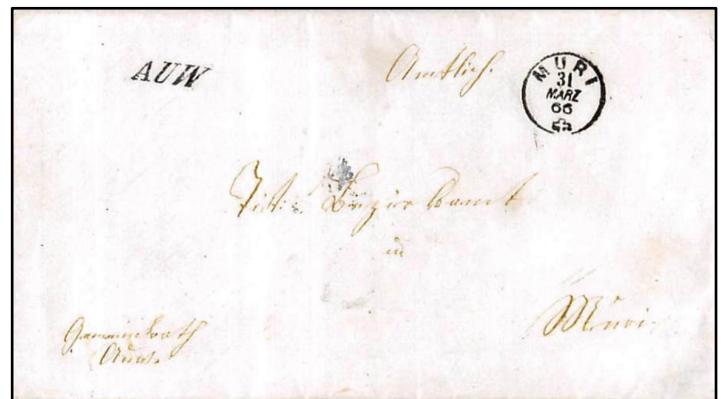 AUW
Amtlich.
MURI
31
MÄRZ
66
Titl. Bezirksamt
in
Muri.
Gemeindrath
Auw.